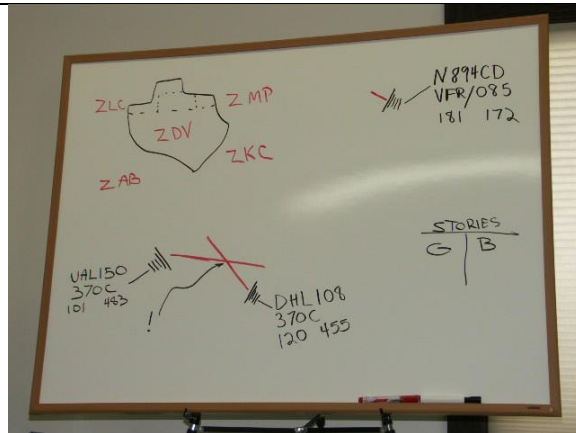 ZLC
ZMP
ZDV
ZKC
ZAB
N894CD
VFR/085
181 172
STORIES
G B
UAL150
370C
101 483
!
DHL108
370C
120 455